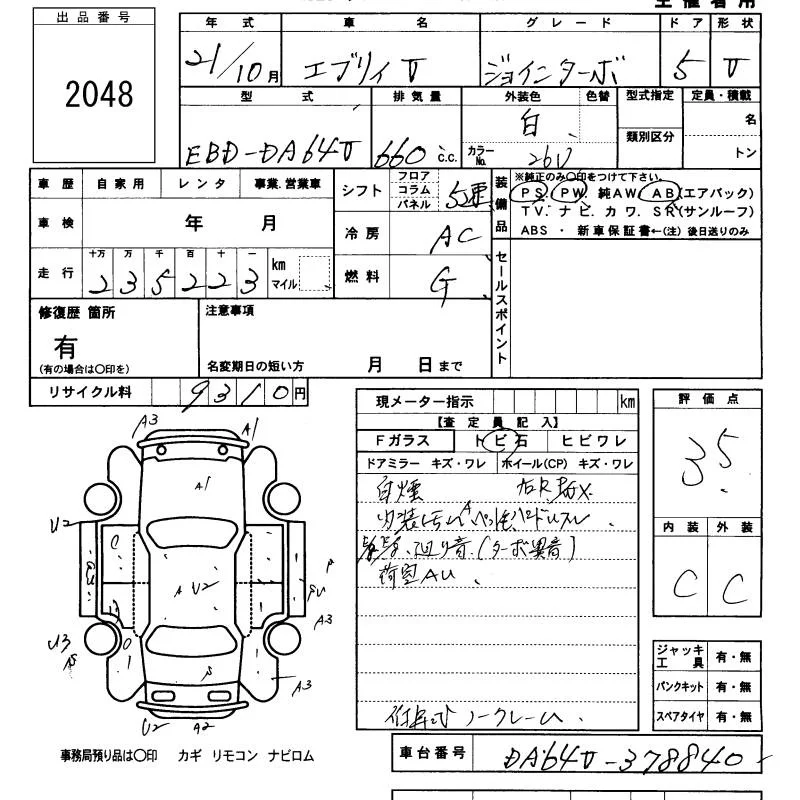 出品番号
2048
年式 車名 グレード ドア 形状
21/10月 エブリィV ジョインターボ 5 V
型式 排気量 外装色 色替 型式指定 定員・積載
EBD-DA64V 660 c.c. 白 カラーNo. 26U 類別区分 名
トン
車歴 自家用 レンタ 事業.営業車 シフト フロア コラム パネル 5速
車検 年 月 冷房 AC
走行 十万 万 千 百 十 一 km マイル 燃料 G
2 3 5 2 2 3
装備品 ※純正のみ〇印をつけて下さい。
PS. PW. 純AW. AB(エアバック)
TV. ナビ. カワ. SR(サンルーフ)
ABS ・ 新車保証書←(注) 後日送りのみ
セールスポイント
修復歴 箇所 注意事項
有
(有の場合は〇印を) 名変期日の短い方 月 日まで
リサイクル料 9310円
現メーター指示 km
【査定員記入】
Fガラス トビ石 ヒビワレ
ドアミラー キズ・ワレ ホイール(CP) キズ・ワレ
白煙
廻り音.(ターボ異音)
荷室AU
ノークレーム.
評価点
3.5
内装 外装
C C
ジャッキ工具 有・無
パンクキット 有・無
スペアタイヤ 有・無
A3 A1
A1
U2
U2
A
A3
U3
A3
U2 A2
事務局預り品は〇印 カギ リモコン ナビロム
車台番号 DA64V-378840